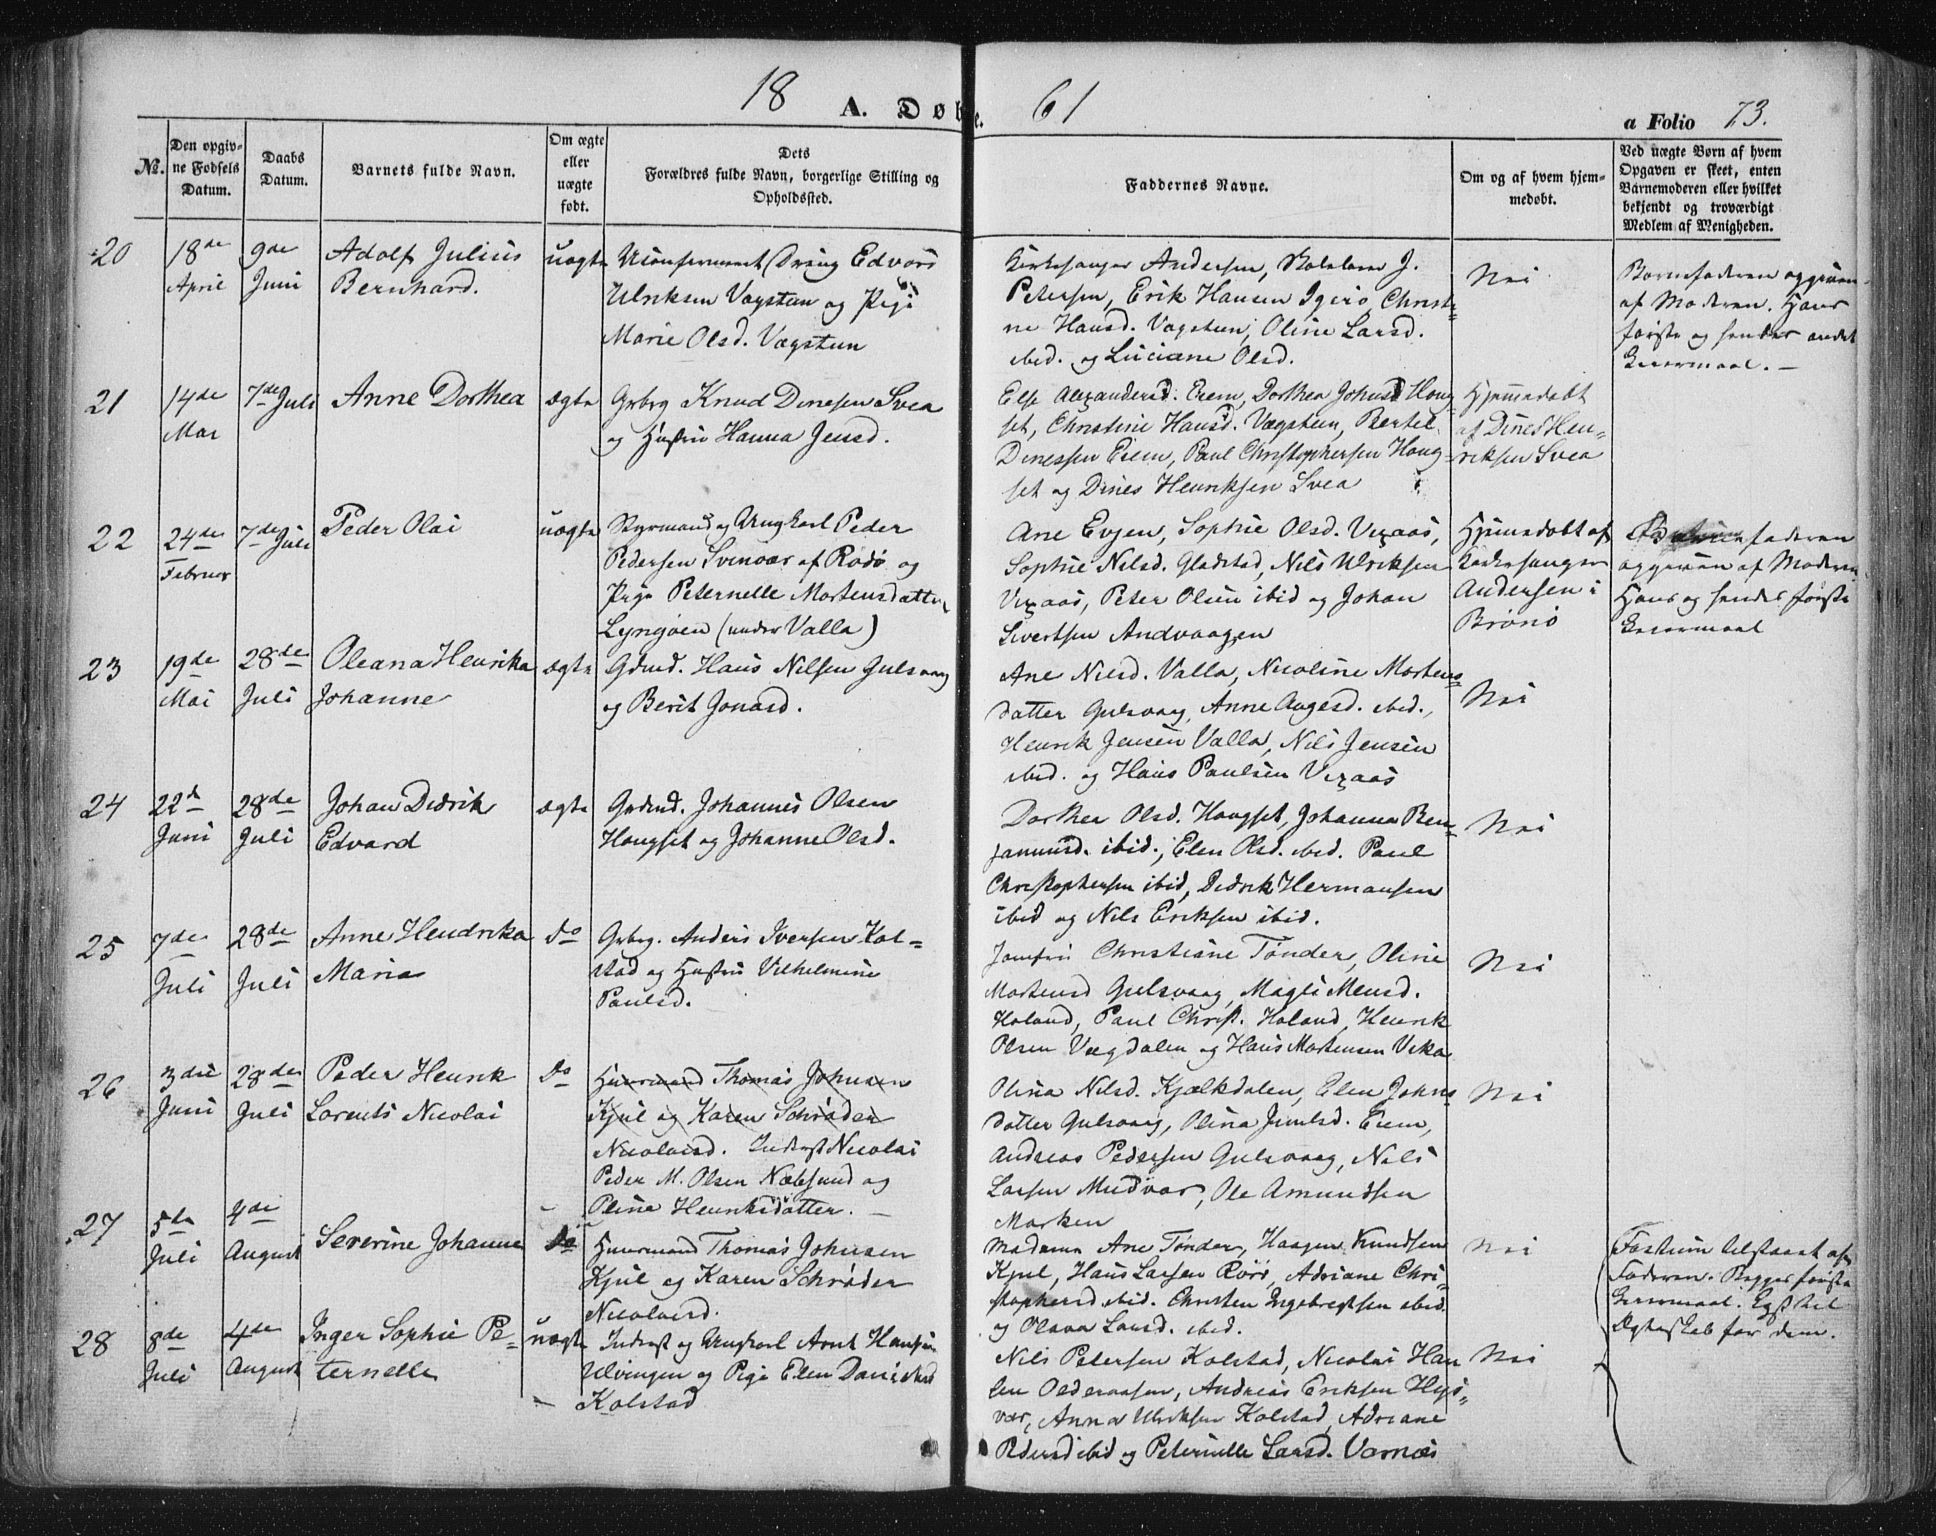 18 61
A. Døbte.
a Folio 73.
No. Den opgivne Fødsels Datum. Daabs Datum. Barnets fulde Navn. Om ægte eller uægte født. Dets Forældres fulde Navn, borgerlige Stilling og Opholdssted. Faddernes Navne. Om og af hvem hjemmedøbt. Ved uægte Børn af hvem Opgaven er skeet, enten Barnemoderen eller hvilket bekjendt og troværdigt Medlem af Menigheden.
20 18de April 9de Juni Adolf Julius Bernhard. uægte
Ukonfirmeert Dreng Edvard
Ulriksen Vægstun og Pige
Marie Olsd. Vægstun
Kirkesanger Andersen, J.
Petersen, Erik Hansen Christi-
ne Hansd. Vægstun, Oline Larsd.
ibid. og Luciane Olsd.
Nei
Barnefaderen opgiven
af Moderen. Hans
første og hendes andet
Leiermaal. —
21 14de Mai 7de Juli Anne Dorthea ægte
Grbrg Knud Dinesen Svea
og Hustru Hanna Jensd.
Else Alexandersd. Erem, Dorthea Johnsd Houg-
set, Christine Hansd. Vægstun, Bertel
Dinessen Erem, Paul Christophersen Houg-
set og Dines Henriksen Svea
Hjemmedøbt
af Dines Hen-
riksen Svea
22 24de Februar 7de Juli Peder Olai uægte
Styrmand og Ungkarl Peder
Pedersen Svinvær af Rødø og
Pige Peternelle Mortensdatter
Lyngøen (under Valla)
Ane Evjen, Sophie Olsd. Vixaas,
Sophie Nilsd. Gladstad, Nils Ulriksen
Vixaas, Peter Olsen ibid og Johan
Sivertsen Andvaagen
Hjemmedøbt af
Kirkesanger
Andersen i
Brønø
faderen
opgiven af Moderen
Hans og hendes første
Leiermaal
23 19de Mai 28de Juli Oleana Henrika Johanne ægte
Gdmd. Hans Nilsen Gulsvaag
og Berit Jonasd.
Ane Nilsd. Valla, Nicoline Mortens-
datter Gulsvaag, Anne Aagesd. ibid.,
Henrik Jensen Valla, Nils Jensen
ibid. og Hans Paulsen Vixaas
Nei
24 22de Juni 28de Juli Johan Didrik Edvard ægte
Grdmd. Johannes Olsen
Hougset og Johanne Olsd.
Dorthea Olsd. Hougset, Johanna Ben-
jaminsd. ibid., Elen Olsd. ibid. Paul
Christophersen ibid, Didrik Hermansen
ibid og Nils Eriksen ibid.
Nei
25 7de Juli 28de Juli Anne Hendrika Maria do
Grbrg. Anders Iversen Kol-
stad og Hustru Vilhelmine
Paulsd.
Jomfru Christiane Tønder, Oline
Mortensd Gulsvaag, Magli Mensd.
Holand, Paul Christ. Holand, Henrik
Olsen Vægdalen og Hans Mortensen Vika
Nei
26 3die Juni 28de Juli Peder Henrik Lorents Nicolai do
Huusmand Thomas Johnsen
Kjul og Karen Schrøder
Nicolaisd. Inderst Nicolai
Peder M. Olsen Næbsund og
Oline Henriksdatter. —
Olina Nilsd. Kjælkdalen, Elen Johns-
datter Gulsvaag, Olina Jensd. Erem,
Andreas Pedersen Gulsvaag, Nils
Larsen Mudvær, Ole Amundsen
Marken
Nei
27 5te Juli 4de August Severine Johanne do
Huusmand Thomas Johnsen
Kjul og Karen Schrøder
Nicolaisd.
Madame Ane Tønder, Haagen Knudsen
Kjul, Hans Larsen Rørø, Adriane Chri-
stophersd ibid. Christen Ingebregtsen ibid.
og Olava Larsd. ibid.
Nei
28 8de Juli 4de August Inger Sophie Pe-
ternelle uægte
Inderst og Ungkarl Arnt Hansen
Ulvingen og Pige Elen Danielsd
Kolstad
Nils Petersen Kolstad, Nicolai Han
sen Olderaasen, Andreas Eriksen Hys-
vær, Anna Ulriksen Kolstad, Adriane
Pedersd ibid og Peternelle Larsd. Varnæs
Nei
tilstaaet af
Faderen. Begges første
Leiermaal. til
Ægteskab for dem.